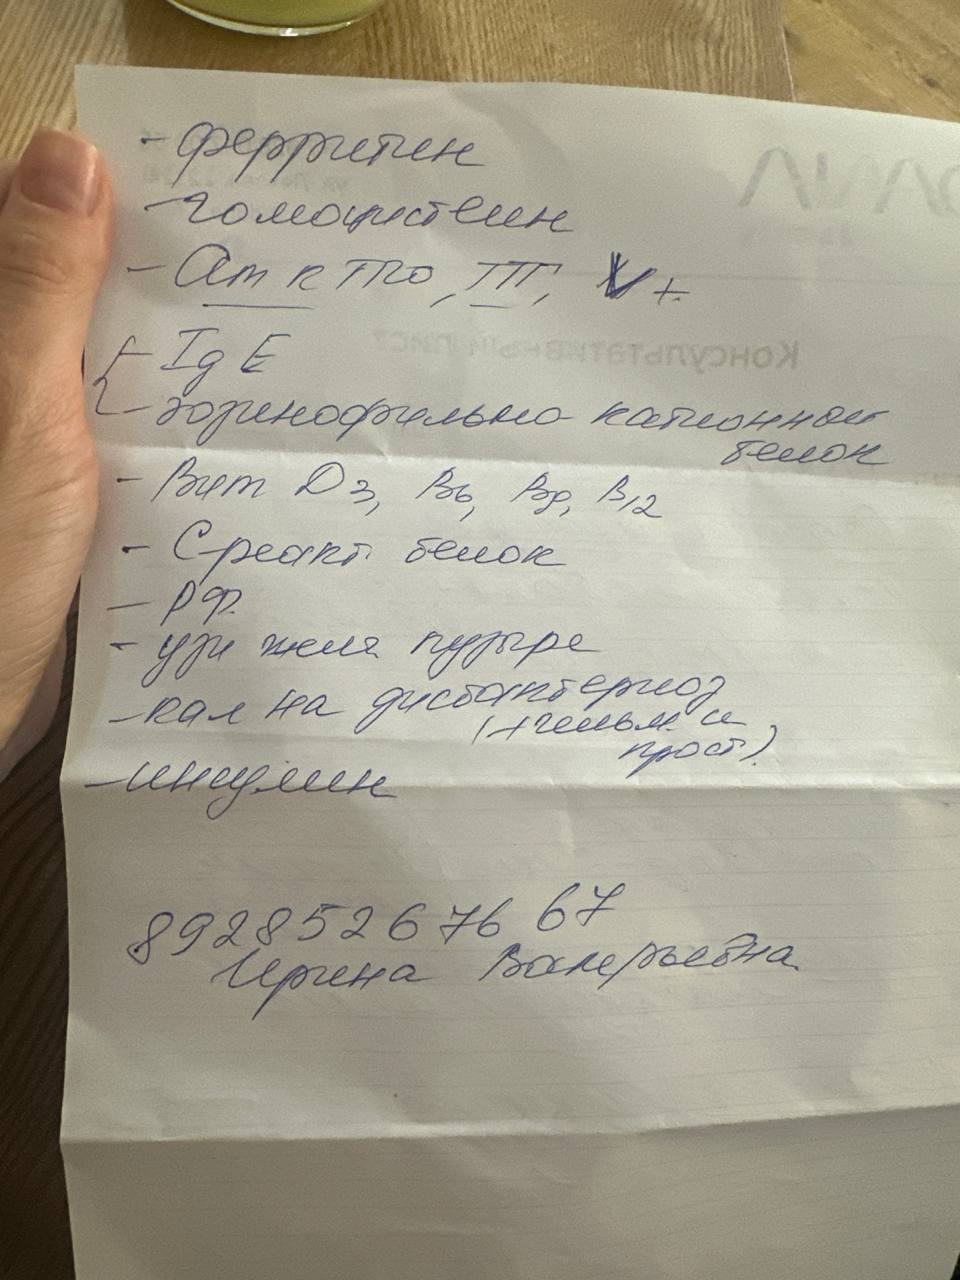 - ферритин
- гомоцистеин
- Ат к ТПО, ТГ, +
- Ig E
- эозинофильно катионный
белок
- Вит D3, B6, B9, B12
- С реакт. белок
- РФ
- узи желч. пузыря
- кал на дисбактериоз
(+гельм и
прост).
- инсулин
8928526 76 67
Ирина Валерьевна
Консультативный лист